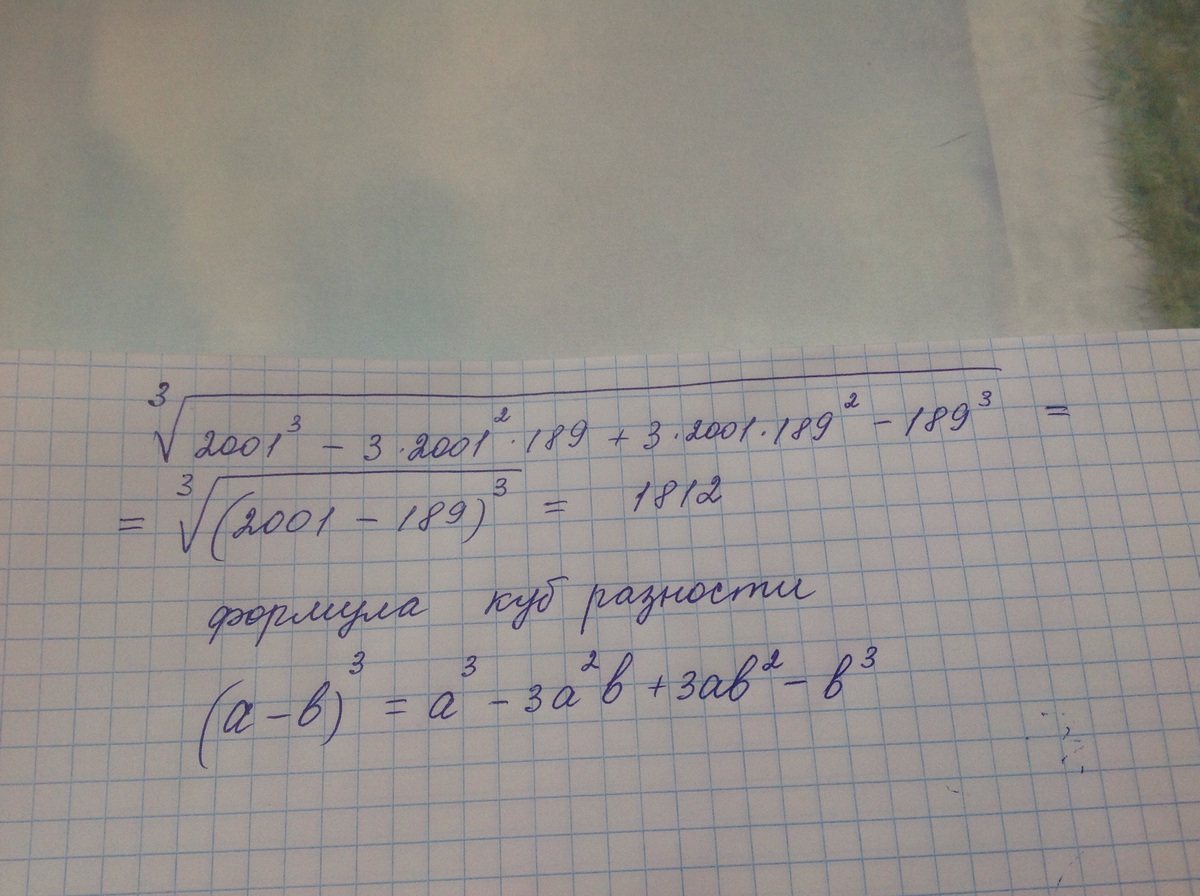 ∛(2001³ − 3·2001²·189 + 3·2001·189² − 189³) =
= ∛((2001 − 189)³) = 1812
формула куб разности
(a − b)³ = a³ − 3a²b + 3ab² − b³